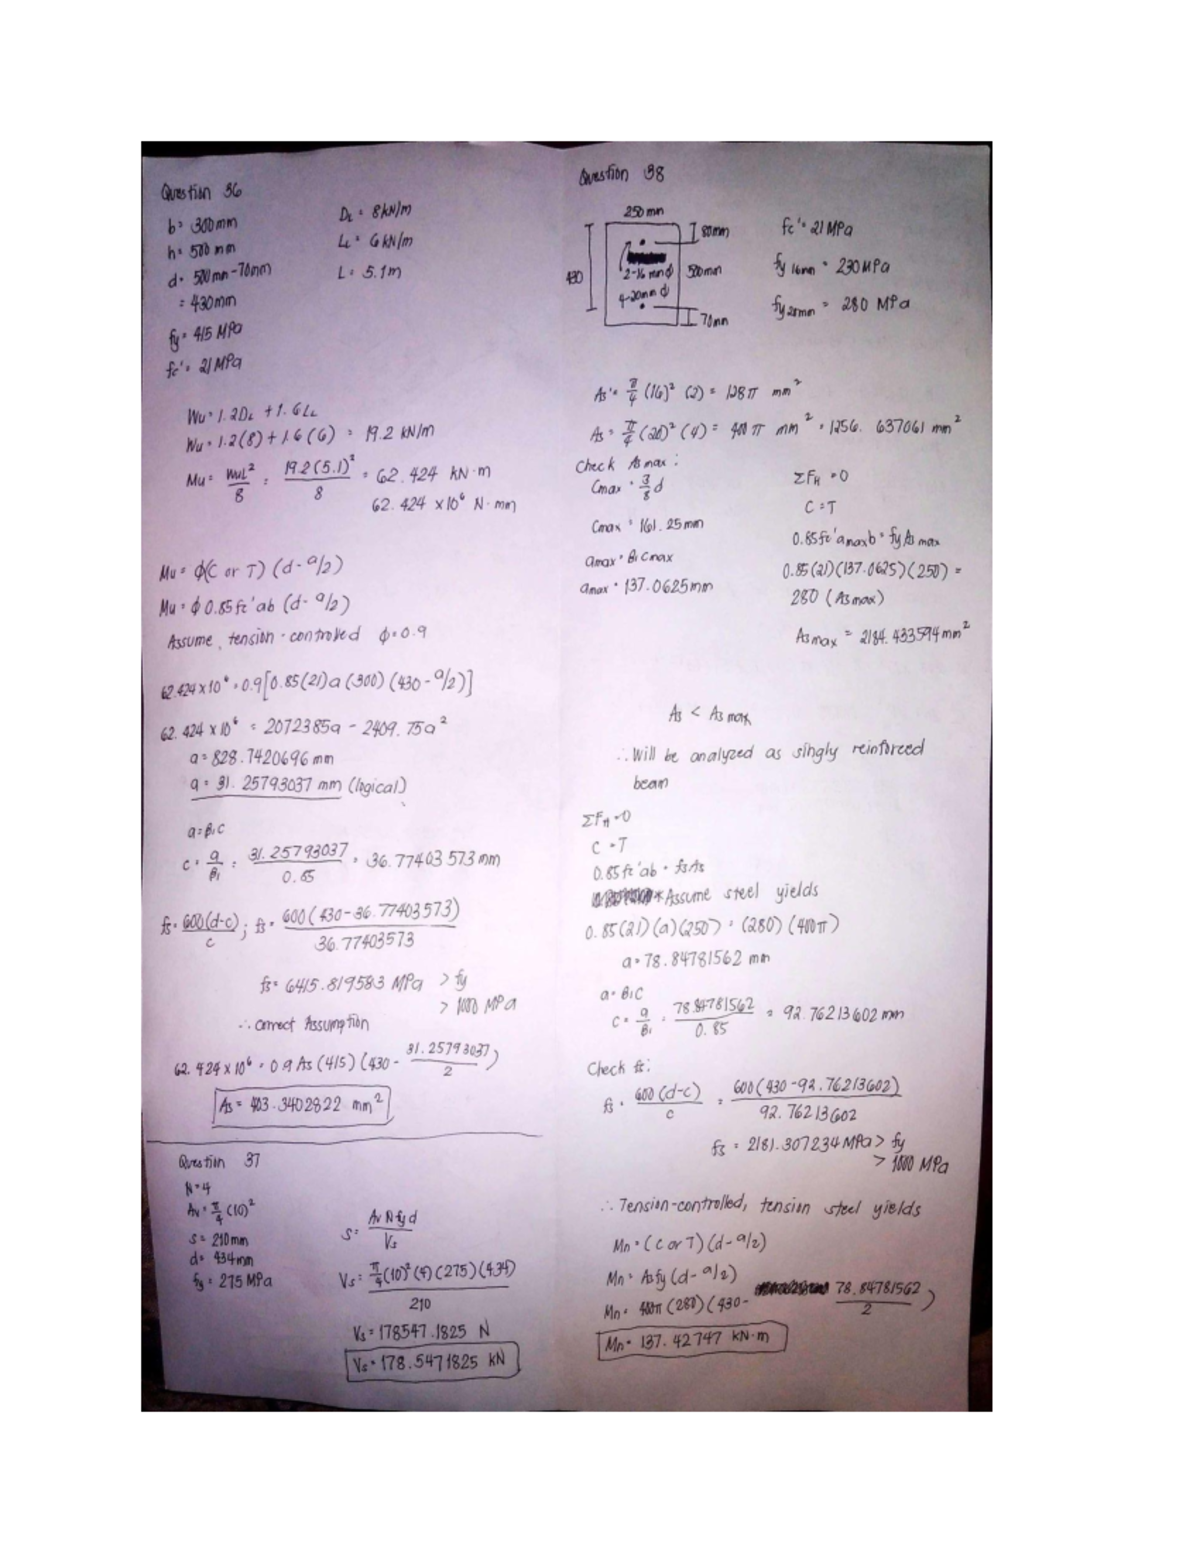 Question 36
b = 300mm
h = 500 mm
d = 500mm - 70mm
= 430mm
fy = 415 MPa
fc' = 21 MPa
DL = 8kN/m
LL = 6 kN/m
L = 5.1m
Wu = 1.2DL + 1.6LL
Wu = 1.2(8) + 1.6(6) = 19.2 kN/m
Mu = WuL²/8 = 19.2(5.1)²/8 = 62.424 kN·m
62.424 x10⁶ N·mm
Mu = ϕ(C or T) (d - a/2)
Mu = ϕ 0.85fc'ab (d - a/2)
Assume, tension-controlled ϕ = 0.9
62.424 x 10⁶ = 0.9[0.85(21)a(300)(430 - a/2)]
62.424 x 10⁶ = 2072385a - 2409.75a²
a = 828.7420696 mm
a = 31.25793037 mm (logical)
a = β1C
C = a/β1 = 31.25793037/0.85 = 36.77403573 mm
fs = 600(d-c)/c ; fs = 600(430-36.77403573)/36.77403573
fs = 6415.819583 MPa > fy
> 1000 MPa
∴ Correct Assumption
62.424 x 10⁶ = 0.9 As (415) (430 - 31.25793037/2)
As = 403.3402822 mm²
Question 37
N = 4
Av = π/4 (10)²
s = 210mm
d = 434mm
fy = 275 MPa
S = Av N fy d/Vs
Vs = π/4(10)²(4)(275)(434)/210
Vs = 178547.1825 N
Vs = 178.5471825 kN
Question 38
250 mm
80mm
430
2-16 mm ϕ
500mm
4-20mm ϕ
70mm
fc' = 21 MPa
fy 16mm = 230 MPa
fy 20mm = 280 MPa
As' = π/4 (16)² (2) = 128π mm²
As = π/4 (20)² (4) = 400 π mm² = 1256.637061 mm²
Check Asmax :
Cmax = 3/8 d
Cmax = 161.25 mm
amax = β1 Cmax
amax = 137.0625mm
ΣFH = 0
C = T
0.85fc'amaxb = fyAsmax
0.85(21)(137.0625)(250) =
280 (Asmax)
Asmax = 2184.433594 mm²
As < Asmax
∴ Will be analyzed as singly reinforced
beam
ΣFH = 0
C = T
0.85fc'ab = fsAs
*Assume steel yields
0.85(21)(a)(250) = (280)(400π)
a = 78.84781562 mm
a = β1C
C = a/β1 = 78.84781562/0.85 = 92.76213602 mm
Check fs:
fs = 600(d-c)/c = 600(430-92.76213602)/92.76213602
fs = 2181.307234 MPa > fy
> 1000 MPa
∴ Tension-controlled, tension steel yields
Mn = (C or T) (d - a/2)
Mn = Asfy (d - a/2)
Mn = 400π (280) (430 - 78.84781562/2)
Mn = 137.42747 kN·m